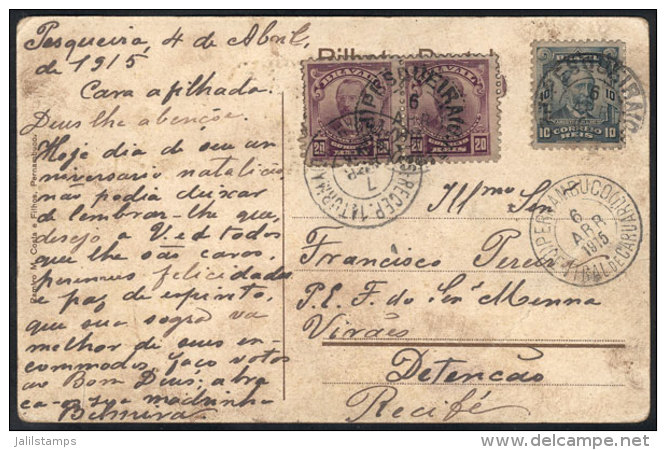 Pesqueira, 4 de Abril,
de 1915
Cara afilhada.
Deus lhe abençoe.
Hoje dia de seu an
niversario natalicio
não podia deixar
de lembrar-lhe que,
desejo a Ved todos
que lhe são caros,
perennes felicidades
e paz de espirito,
que sua sogra vá
melhor de seus en-
commodos, faço votos
ao Bom Deus, abra
ça-a sua madrinha
Belmira
Bilhete Postal
BRAZIL
20 20
REIS
BRAZIL
20 20
REIS
BRAZIL
10 10
CORREIO
10 REIS 10
PESQUEIRA
6
7
PERNAMBUCO
6
ABR
1915
Illmo Snr
Francisco Pereira
P.E.F. do Snr Menna
Virães
Detencão
Recife
Ramiro M. Costa e Filhos, Pernambuco
jalilstamps
www.delcampe.net